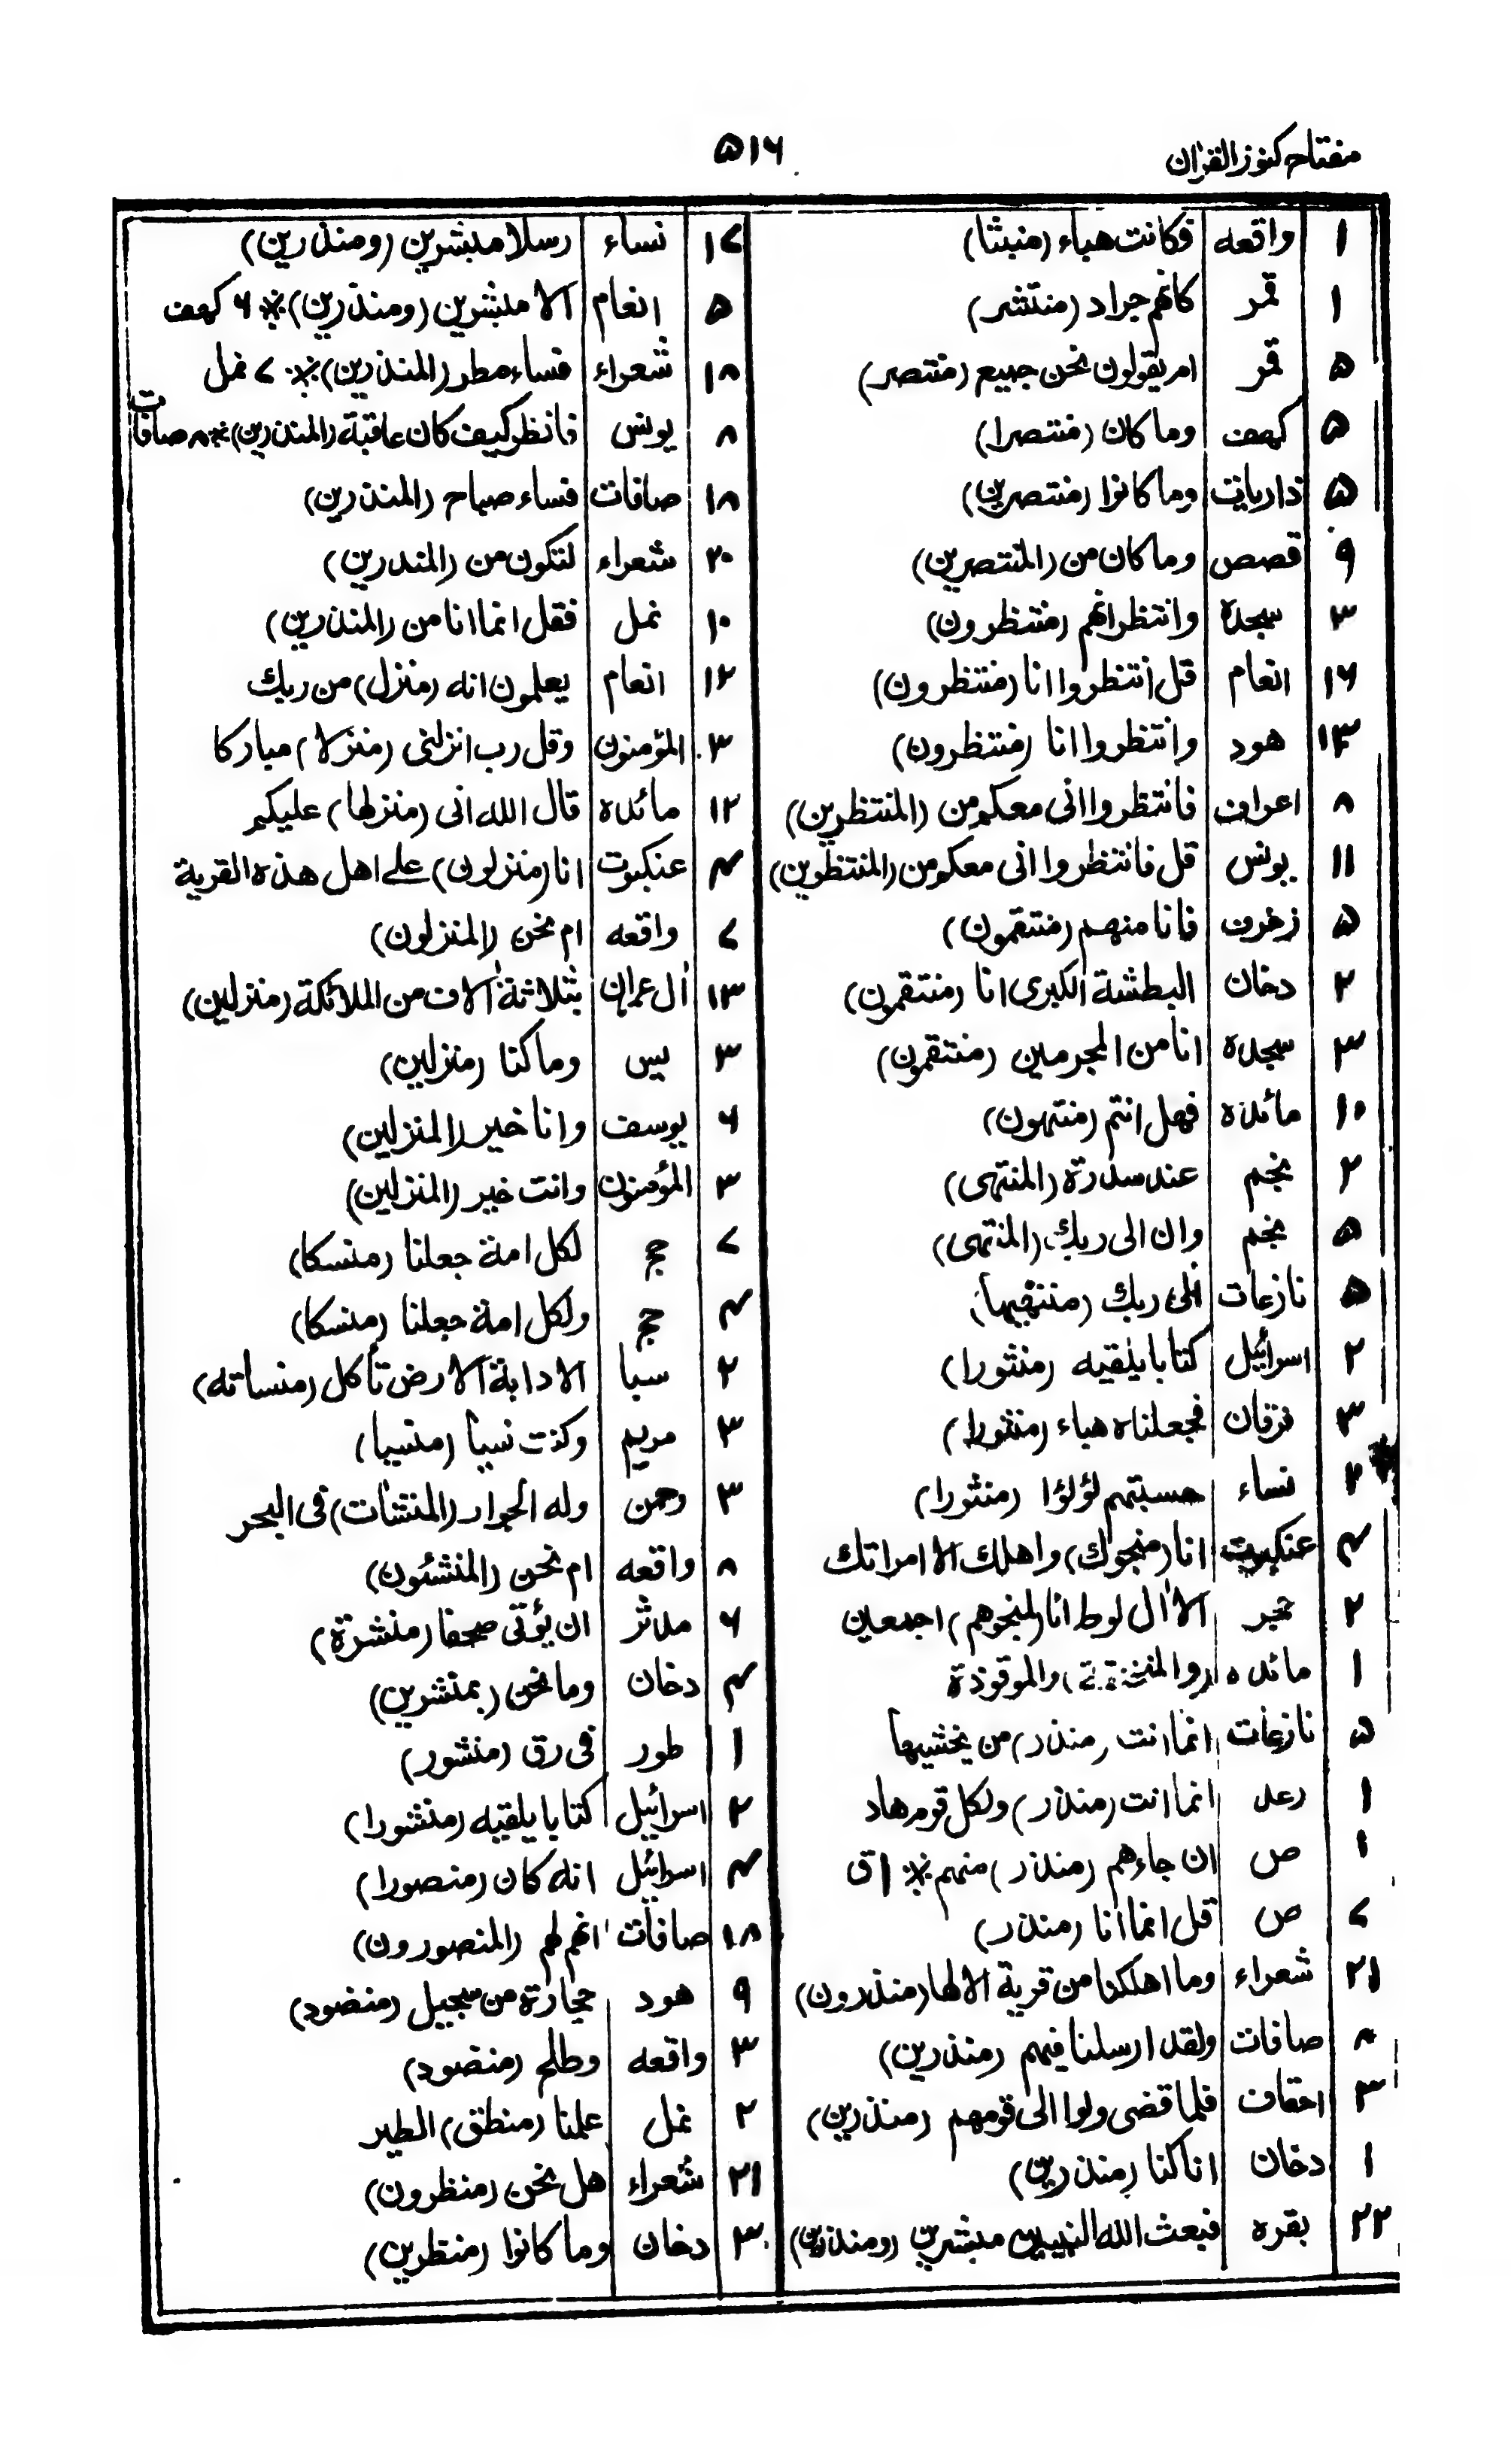 مفتاح كنوز القرآن ۵۱۶
۱ واقعه فكانت هباء (منبثا)
۱ قمر كانهم جراد (منتشر)
۵ قمر ام يقولون نحن جميع (منتصر)
۵ كهف وما كان (منتصرا)
۵ ذاريات وما كانوا (منتصرين)
۹ قصص وما كان من (المنتصرين)
۳ سجده وانتظر انهم (منتظرون)
۱۶ انعام قل انتظروا انا (منتظرون)
۱۳ هود وانتظروا انا (منتظرون)
۸ اعراف فانتظروا انى معكم من (المنتظرين)
۱۱ يونس قل فانتظروا انى معكم من (المنتظرين)
۵ زخرف فانا منهم (منتقمون)
۲ دخان البطشة الكبرى انا (منتقمون)
۳ سجده انا من المجرمين (منتقمون)
۱۰ مائده فهل انتم (منتهون)
۲ نجم عند سدرة (المنتهى)
۵ نجم وان الى ربك (المنتهى)
۵ نازعات الى ربك (منتهيها)
۲ اسرائيل كتابا يلقيه (منثورا)
۳ فرقان فجعلناه هباء (منثورا)
۲ نساء حسبتهم لؤلؤا (منثورا)
۴ عنكبوت انا (منجوك) واهلك الا امراتك
۲ حجر الا آل لوط انا (لمنجوهم) اجمعين
۱ مائده (والمنخنقة) والموقوذة
۵ نازعات انما انت (منذر) من يخشيها
۱ رعد انما انت (منذر) ولكل قوم هاد
۱ ص ان جاءهم (منذر) منهم※ ۱ ق
۷ ص قل انما انا (منذر)
۲۱ شعراء وما اهلكنا من قرية الا لها (منذرون)
۸ صافات ولقد ارسلنا فيهم (منذرين)
۳ احقاف فلما قضى ولوا الى قومهم (منذرين)
۱ دخان انا كنا (منذرين)
۲۲ بقره فبعث الله النبيين مبشرين (ومنذرين)
۱۷ نساء رسلا مبشرين (ومنذرين)
۵ انعام الا مبشرين (ومنذرين)※ ۶ كهف
۱۸ شعراء فساء مطر (المنذرين)※ ۷ نمل
۸ يونس فانظر كيف كان عاقبة (المنذرين)※ ۸ صافات
۱۸ صافات فساء صباح (المنذرين)
۲۰ شعراء لتكون من (المنذرين)
۱۰ نمل فقل انما انا من (المنذرين)
۱۲ انعام يعلمون انه (منزل) من ربك
۳ المؤمنون وقل رب انزلنى (منزلا) مباركا
۱۲ مائده قال الله انى (منزلها) عليكم
۴ عنكبوت انا (منزلون) على اهل هذه القرية
۷ واقعه ام نحن (المنزلون)
۱۳ آل عمران بثلاثة آلاف من الملائكة (منزلين)
۳ يس وما كنا (منزلين)
۶ يوسف وانا خير (المنزلين)
۳ المؤمنون وانت خير (المنزلين)
۷ حج لكل امة جعلنا (منسكا)
۴ حج ولكل امة جعلنا (منسكا)
۲ سبا الا دابة الارض تأكل (منساته)
۳ مريم وكنت نسيا (منسيا)
۳ رحمن وله الجوار (المنشات) فى البحر
۸ واقعه ام نحن (المنشئون)
۶ مدثر ان يؤتى صحفا (منشرة)
۴ دخان وما نحن (بمنشرين)
۱ طور فى رق (منشور)
۲ اسرائيل كتابا يلقيه (منشورا)
۴ اسرائيل انه كان (منصورا)
۱۸ صافات انهم لهم (المنصورون)
۹ هود حجارة من سجيل (منضود)
۳ واقعه وطلح (منضود)
۲ نمل علمنا (منطق) الطير
۲۱ شعراء هل نحن (منظرون)
۳ دخان وما كانوا (منظرين)